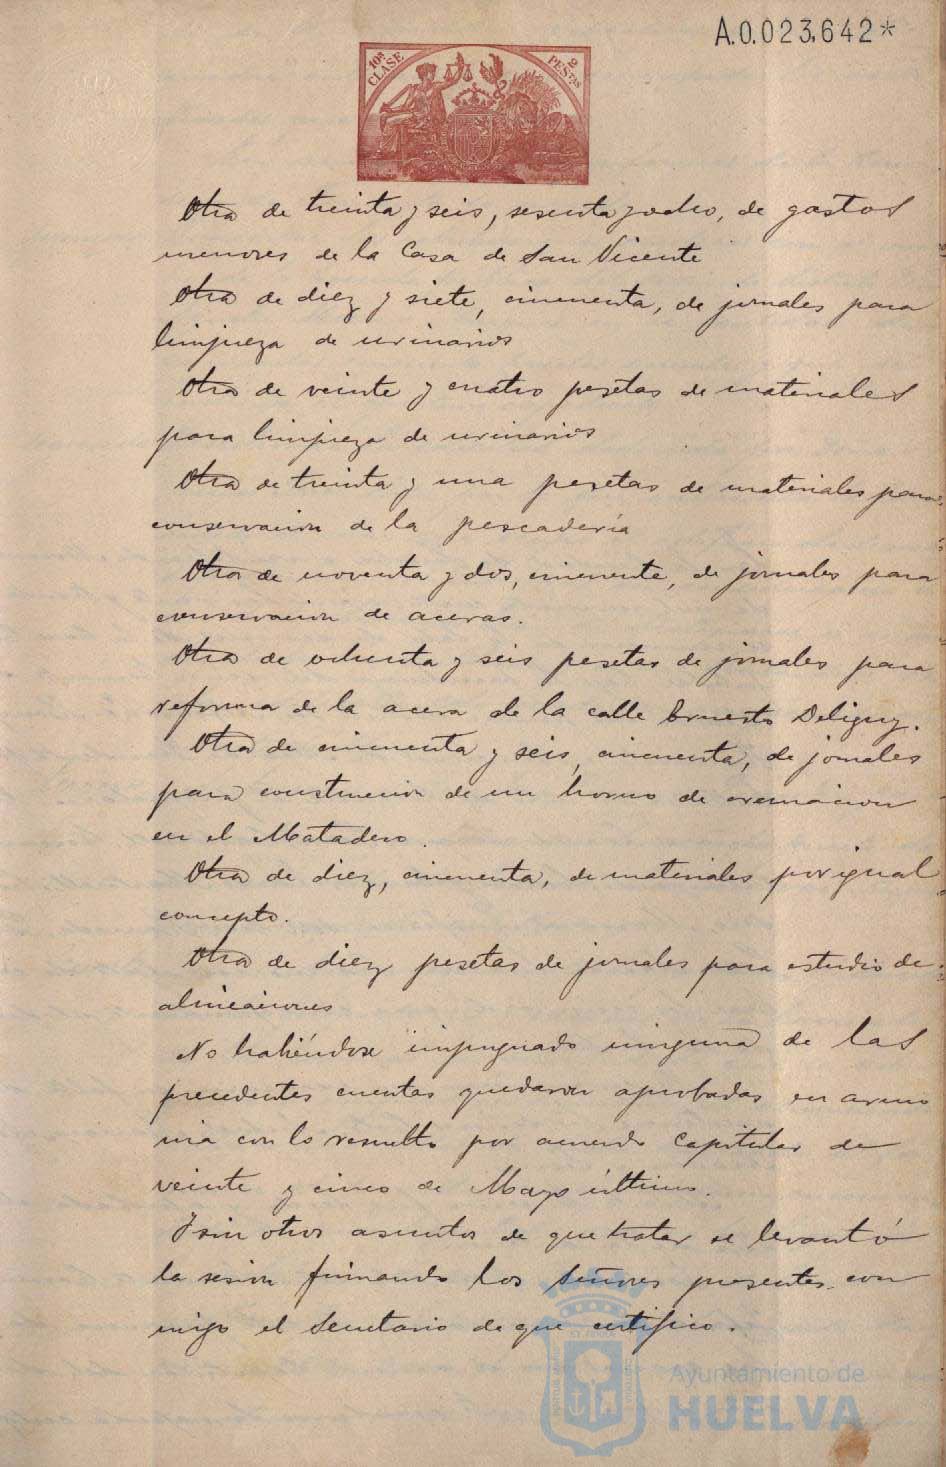 A.0.023,642*
10ª CLASE
2 PESTAS
Otra de treinta y seis, sesenta y ocho, de gastos
menores de la Casa de San Vicente
Otra de diez y siete, cincuenta, de jornales para
limpieza de urinarios
Otra de veinte y cuatro pesetas de materiales
para limpieza de urinarios
Otra de treinta y una pesetas de materiales para
conservacion de la pescadería
Otra de noventa y dos, cincuenta, de jornales para
conservacion de aceras.
Otra de ochenta y seis pesetas de jornales para
reforma de la acera de la calle Ernesto Deligny.
Otra de cincuenta y seis, cincuenta, de jornales
para construccion de un horno de cremacion
en el Matadero.
Otra de diez, cincuenta, de materiales por igual
concepto.
Otra de diez pesetas de jornales para estudio de
alineaciones
No habiéndose impugnado ninguna de las
precedentes cuentas quedaron aprobadas en armo
nia con lo resuelto por acuerdo Capitular de
veinte y cinco de Mayo último.
Y sin otros asuntos de que tratar se levantó
la sesion firmando los Señores presentes con
migo el Secretario de que certifico.
Ayuntamiento de
HUELVA